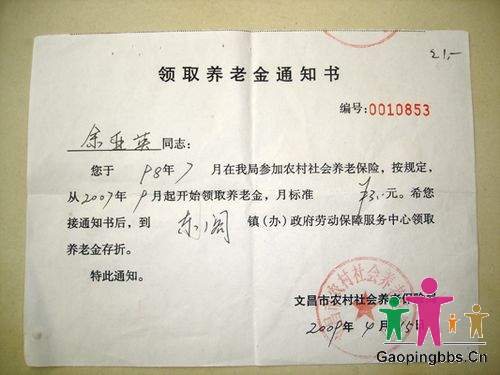 领取养老金通知书
编号:0010853
余亚英同志:
您于98年7月在我局参加农村社会养老保险，按规定，
从2007年9月起开始领取养老金，月标准 元。希您
接通知书后，到东阁镇（办）政府劳动保障服务中心领取
养老金存折。
特此通知。
文昌市农村社会养老保险
2009年4月15日
Gaopingbbs.Cn